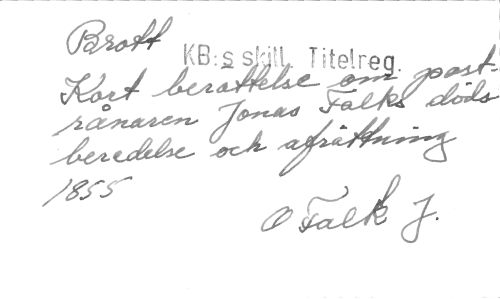 Brott
KB:s skill. Titelreg.
Kort berättelse om post-
rånaren Jonas Falks döds
beredelse och afrättning
1855
O Falk J.